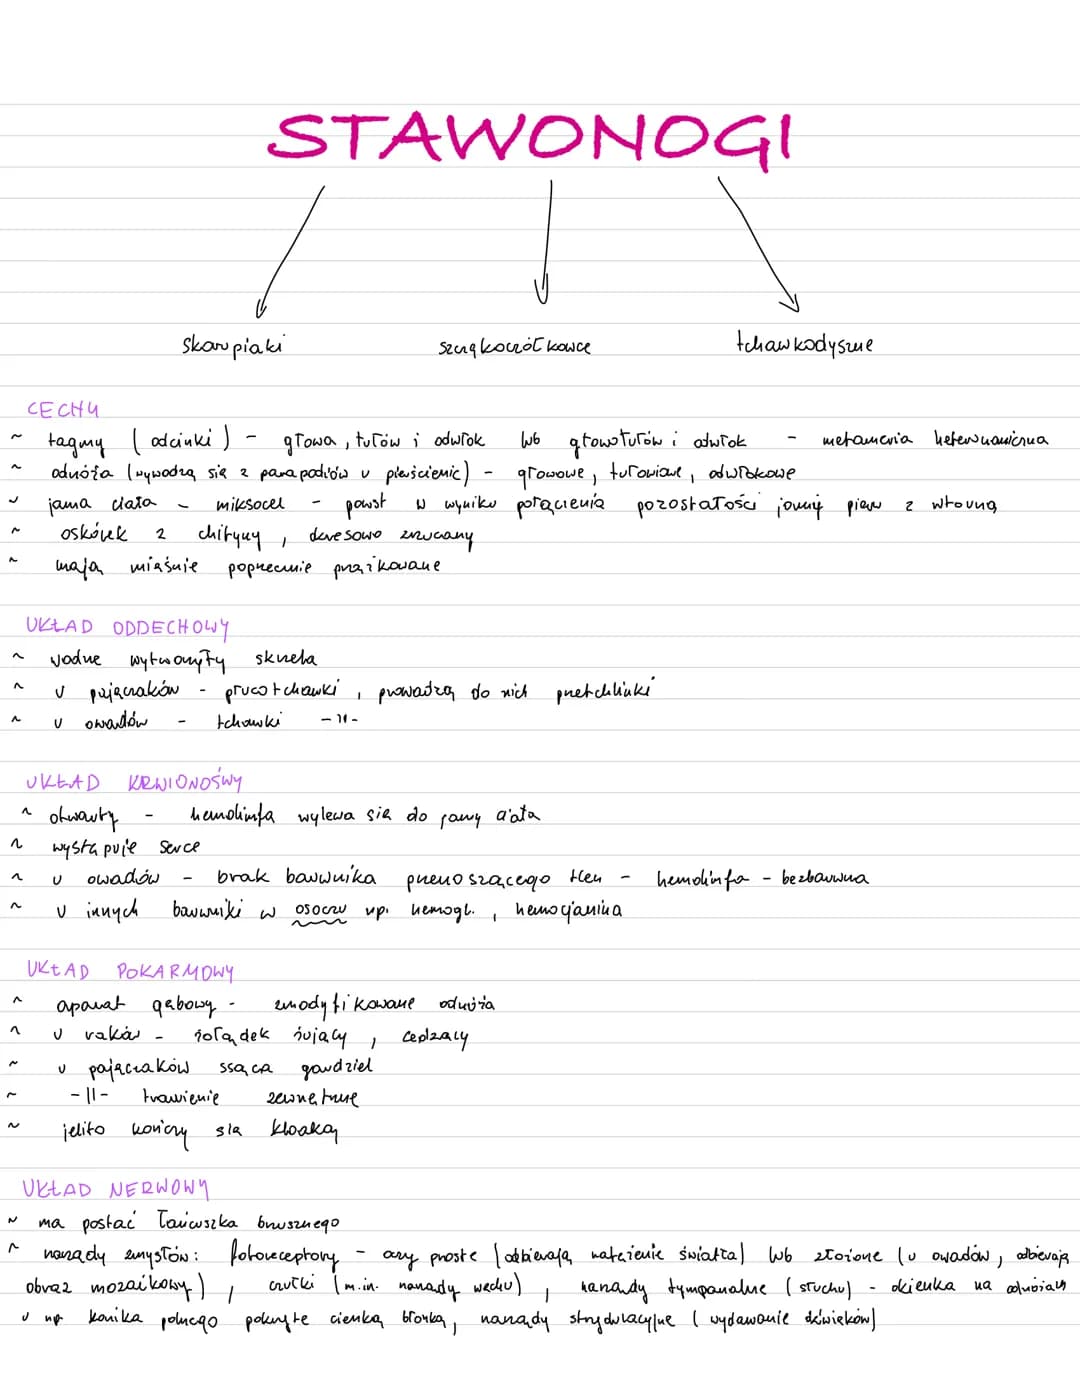 STAWONOGI
skorupiaki szczękoczółkowce tchawkodyszne
CECHY
~ tagmy (odcinki) - głowa, tułów i odwłok lub głowotułów i odwłok - metameria heteronomiczna
~ odnóża (wywodzą się z parapodiów u pierścienic) - głowowe, tułowiowe, odwłokowe
~ jama ciała - miksocel - powst w wyniku połączenia pozostałości jamy pierw z wtórną
~ oskórek z chityny, okresowo zrzucany
~ mają mięśnie poprzecznie prążkowane
UKŁAD ODDECHOWY
~ wodne wytworzyły skrzela
~ u pajęczaków - płucotchawki, prowadzą do nich przetchlinki
~ u owadów - tchawki -||-
UKŁAD KRWIONOŚNY
~ otwarty - hemolimfa wylewa się do jamy ciała
~ występuje serce
~ u owadów - brak barwnika przenoszącego tlen - hemolimfa - bezbarwna
~ u innych barwniki w osoczu np. hemogl., hemocyjanina
UKŁAD POKARMOWY
~ aparat gębowy - zmodyfikowane odnóża
~ u raków - żołądek żujący, cedzący
~ u pajęczaków ssąca gardziel
~ -||- trawienie zewnętrzne
~ jelito kończy się kloaką
UKŁAD NERWOWY
~ ma postać łańcuszka brzusznego
~ narządy zmysłów: fotoreceptory - oczy proste (odbierają natężenie światła) lub złożone (u owadów, odbierają
obraz mozaikowy), czułki (m.in. narządy węchu), narządy tympanalne (słuchu) - okienka na odnóżach
u np konika polnego pokryte cienką błonką, narządy strydulacyjne (wydawanie dźwięków)